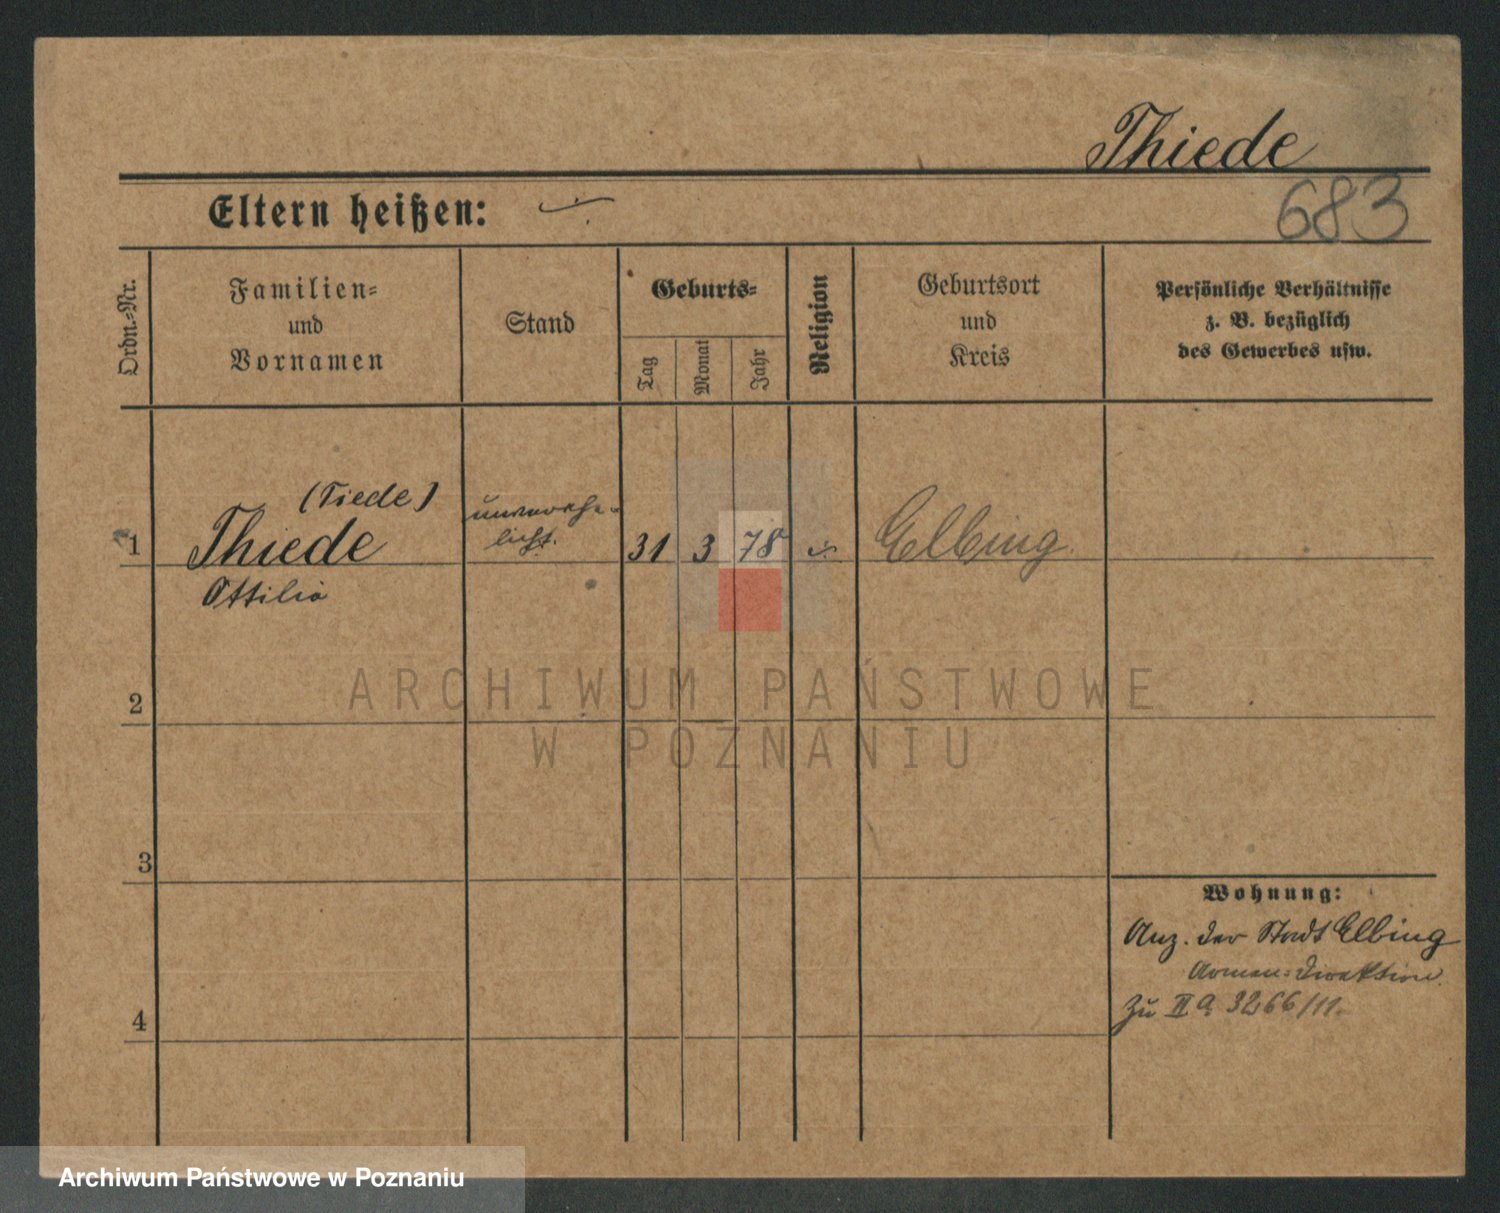 Thiede
683
Eltern heißen: ·/·
Ordn.-Nr.
Familien-
und
Vornamen
Stand
Geburts-
Tag
Monat
Jahr
Religion
Geburtsort
und
Kreis
Persönliche Verhältnisse
z. B. bezüglich
des Gewerbes usw.
(Tiede)
1 Thiede unverehe-
licht. 31 3 78 ·/· Elbing.
Ottilie
2
3
4
Wohnung:
Anz. der Stadt Elbing
Armen-Direktion.
Zu II a 3266/11.
ARCHIWUM PAŃSTWOWE
W POZNANIU
Archiwum Państwowe w Poznaniu